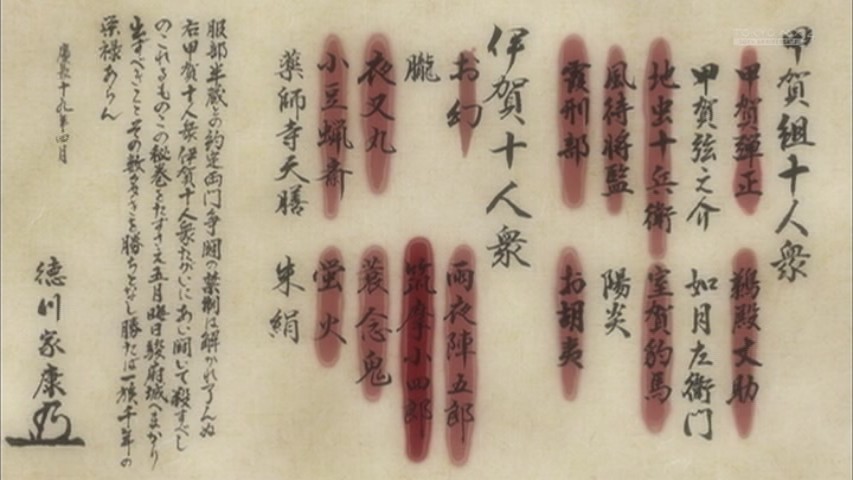 甲賀組十人衆
甲賀彈正 鵜殿丈助
甲賀弦之介 如月左衛門
地虫十兵衛 室賀豹馬
風待將監 陽炎
霞刑部 お胡夷
伊賀十人衆
お幻 雨夜陣五郎
朧 筑摩小四郎
夜叉丸 蓑念鬼
小豆蝋斎 蛍火
薬師寺天膳 朱絹
服部半蔵との約定両門争闘の禁制は解かれ了んぬ
右甲賀十人衆伊賀十人衆たがいにあい闘いて殺すべし
のこれるものこの秘巻をたずさえ五月晦日駿府城へまかり
出ずべきことその数多きを勝ちとなし勝たば一族千年の
栄禄あらん
慶長十九年四月
徳川家康